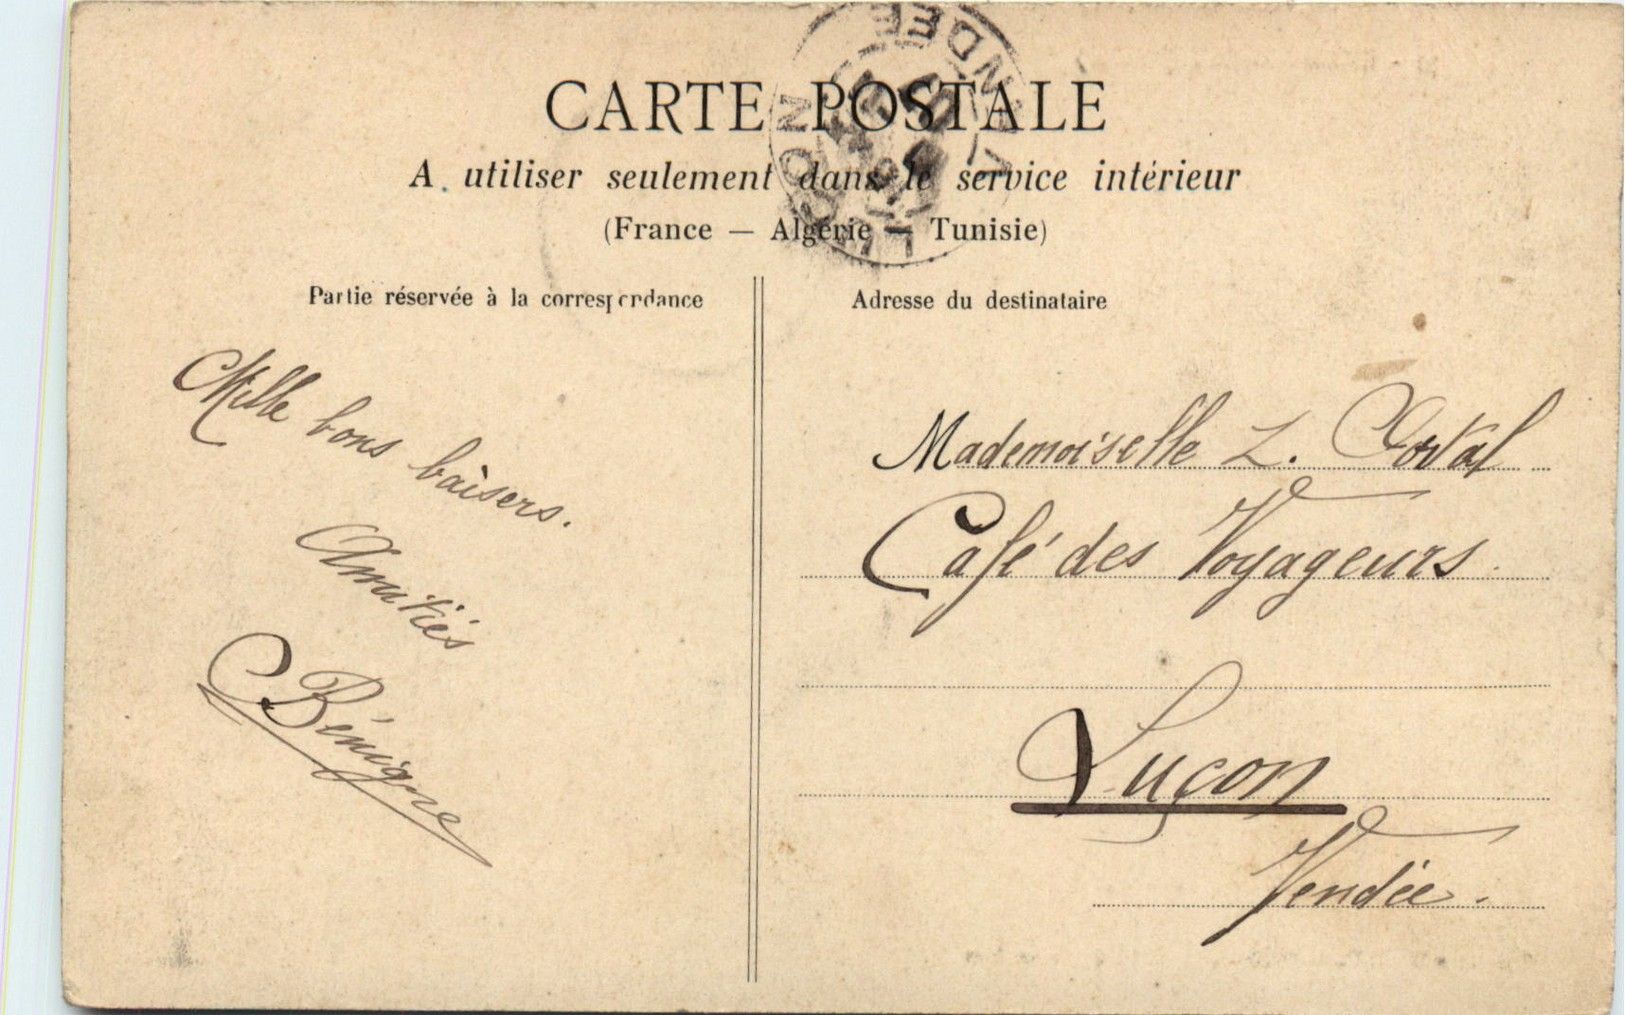 CARTE POSTALE
A utiliser seulement dans le service intérieur
(France — Algérie — Tunisie)
LUÇON
VENDÉE
Partie réservée à la correspondance
Mille bons baisers.
Amitiés
Bénigne
Adresse du destinataire
Mademoiselle L.
Café des Voyageurs
Luçon
Vendée.